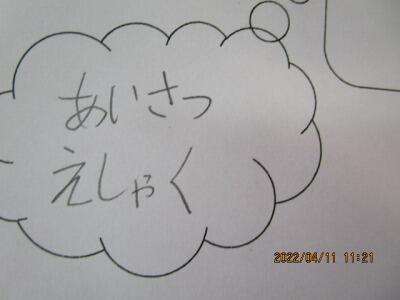 あいさつ
えしゃく
2022/04/11 11:21